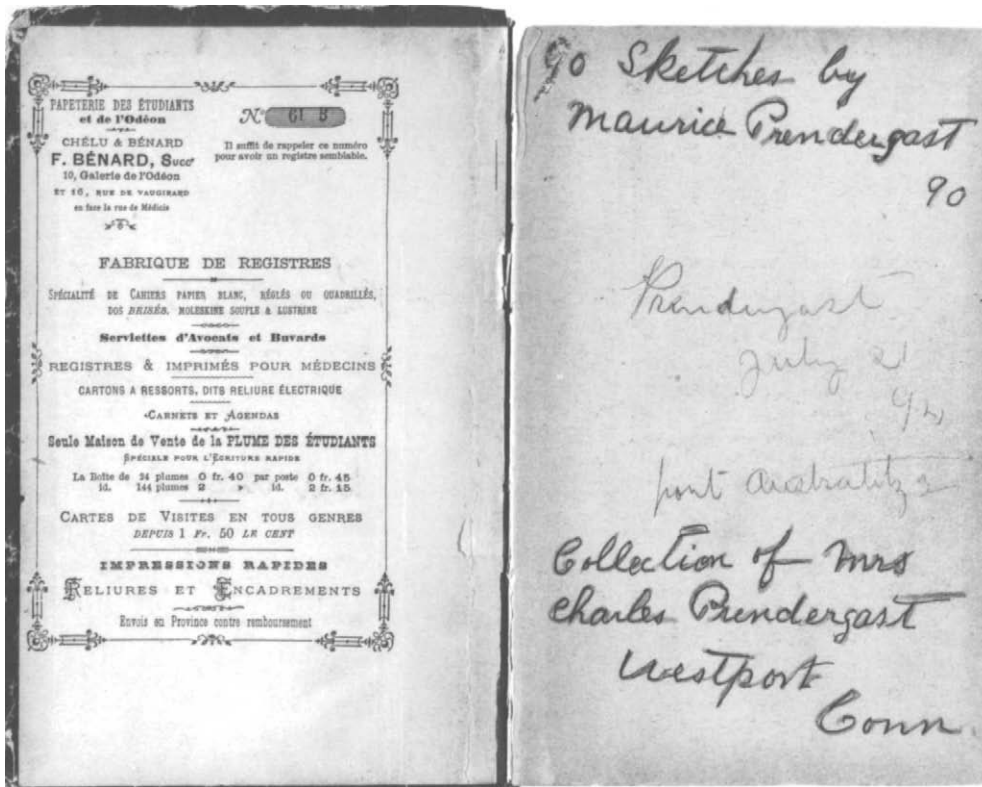 PAPETERIE DES ÉTUDIANTS
et de l'Odéon
CHÉLU & BÉNARD
F. BÉNARD, Succr
10, Galerie de l'Odéon
ET 16, RUE DE VAUGIRARD
en face la rue de Médicis
No GI B
Il suffit de rappeler ce numéro
pour avoir un registre semblable.
FABRIQUE DE REGISTRES
SPÉCIALITÉ DE CAHIERS PAPIER BLANC, RÉGLÉS OU QUADRILLÉS,
DOS BRISÉS, MOLESKINE SOUPLE & LUSTRINE
Serviettes d'Avocats et Buvards
REGISTRES & IMPRIMÉS POUR MÉDECINS
CARTONS A RESSORTS, DITS RELIURE ÉLECTRIQUE
CARNETS ET AGENDAS
Seule Maison de Vente de la PLUME DES ÉTUDIANTS
SPÉCIALE POUR L'ÉCRITURE RAPIDE
La Boîte de 24 plumes 0 fr. 40 par poste 0 fr. 45
id. 144 plumes 2 » id. 2 fr. 15
CARTES DE VISITES EN TOUS GENRES
DEPUIS 1 Fr. 50 LE CENT
IMPRESSIONS RAPIDES
RELIURES ET ENCADREMENTS
Envois en Province contre remboursement
90 Sketches by
Maurice Prendergast
90
Prendergast
July 21
92
pont
Collection of Mrs
Charles Prendergast
Westport
Conn.